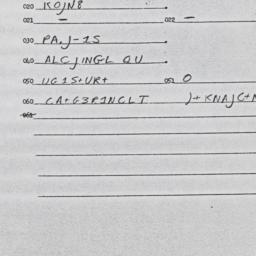 020 KOJN8
021 — 022 —
030 PA.J-1S
040 ALCJINGL QU
050 UG1S+UR+ 051 0
060 CA+G3P1NCLT )+KNAJC+